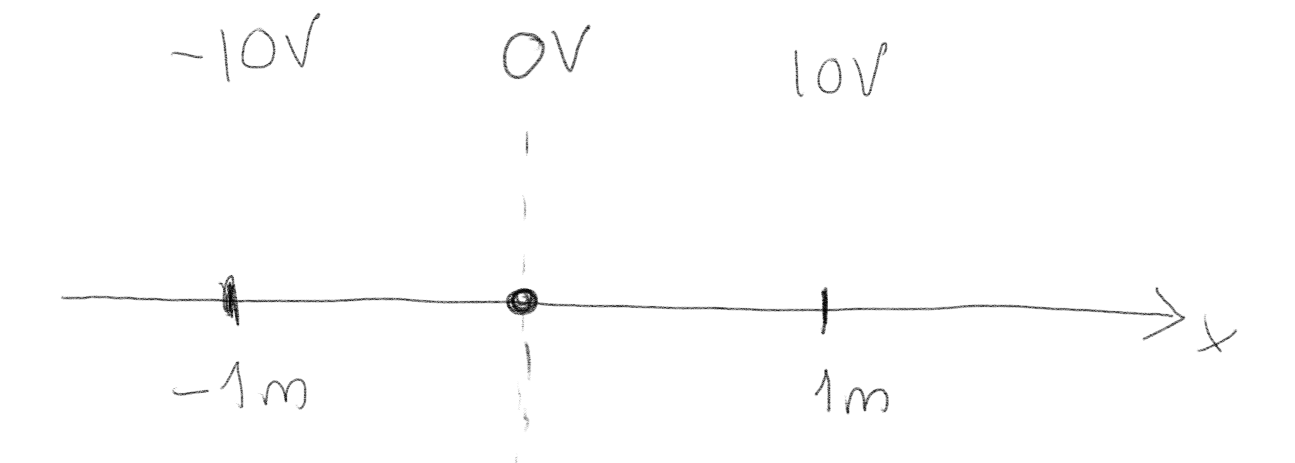 -10V 0V 10V
x
-1m 1m